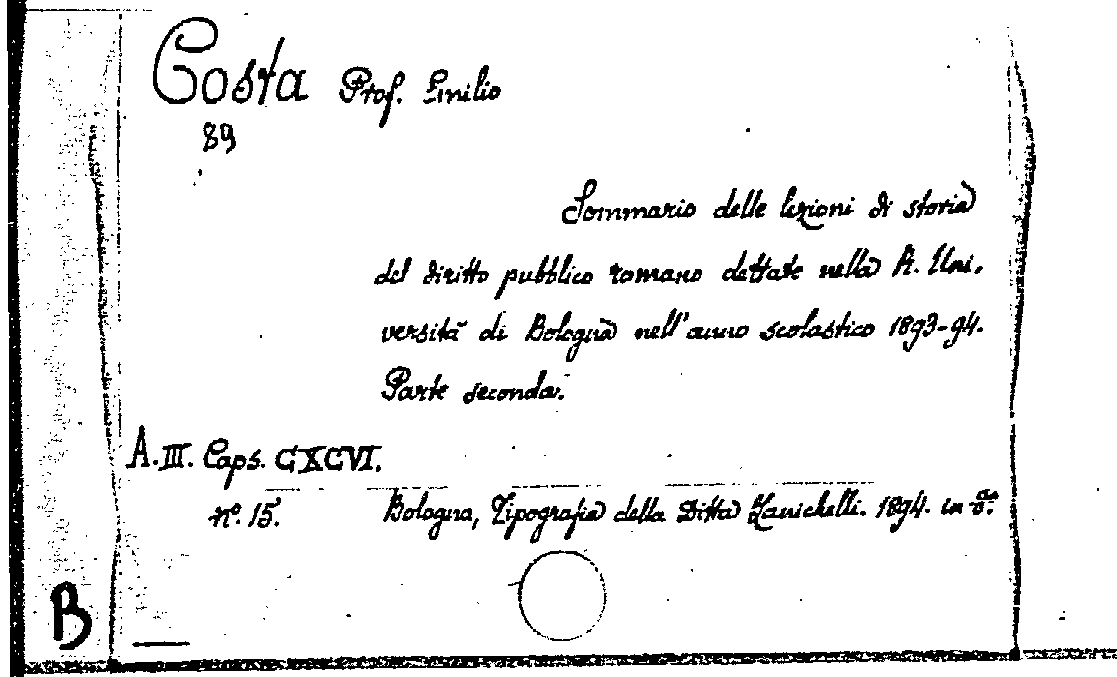 Costa Prof. Emilio
89
Sommario delle lezioni di storia
del diritto pubblico romano dettate nella R. Uni-
versità di Bologna nell'anno scolastico 1893-94.
Parte seconda.
A. III. Caps. CXCVI.
n.° 15.
Bologna, Tipografia della Ditta Zanichelli. 1894. in
B